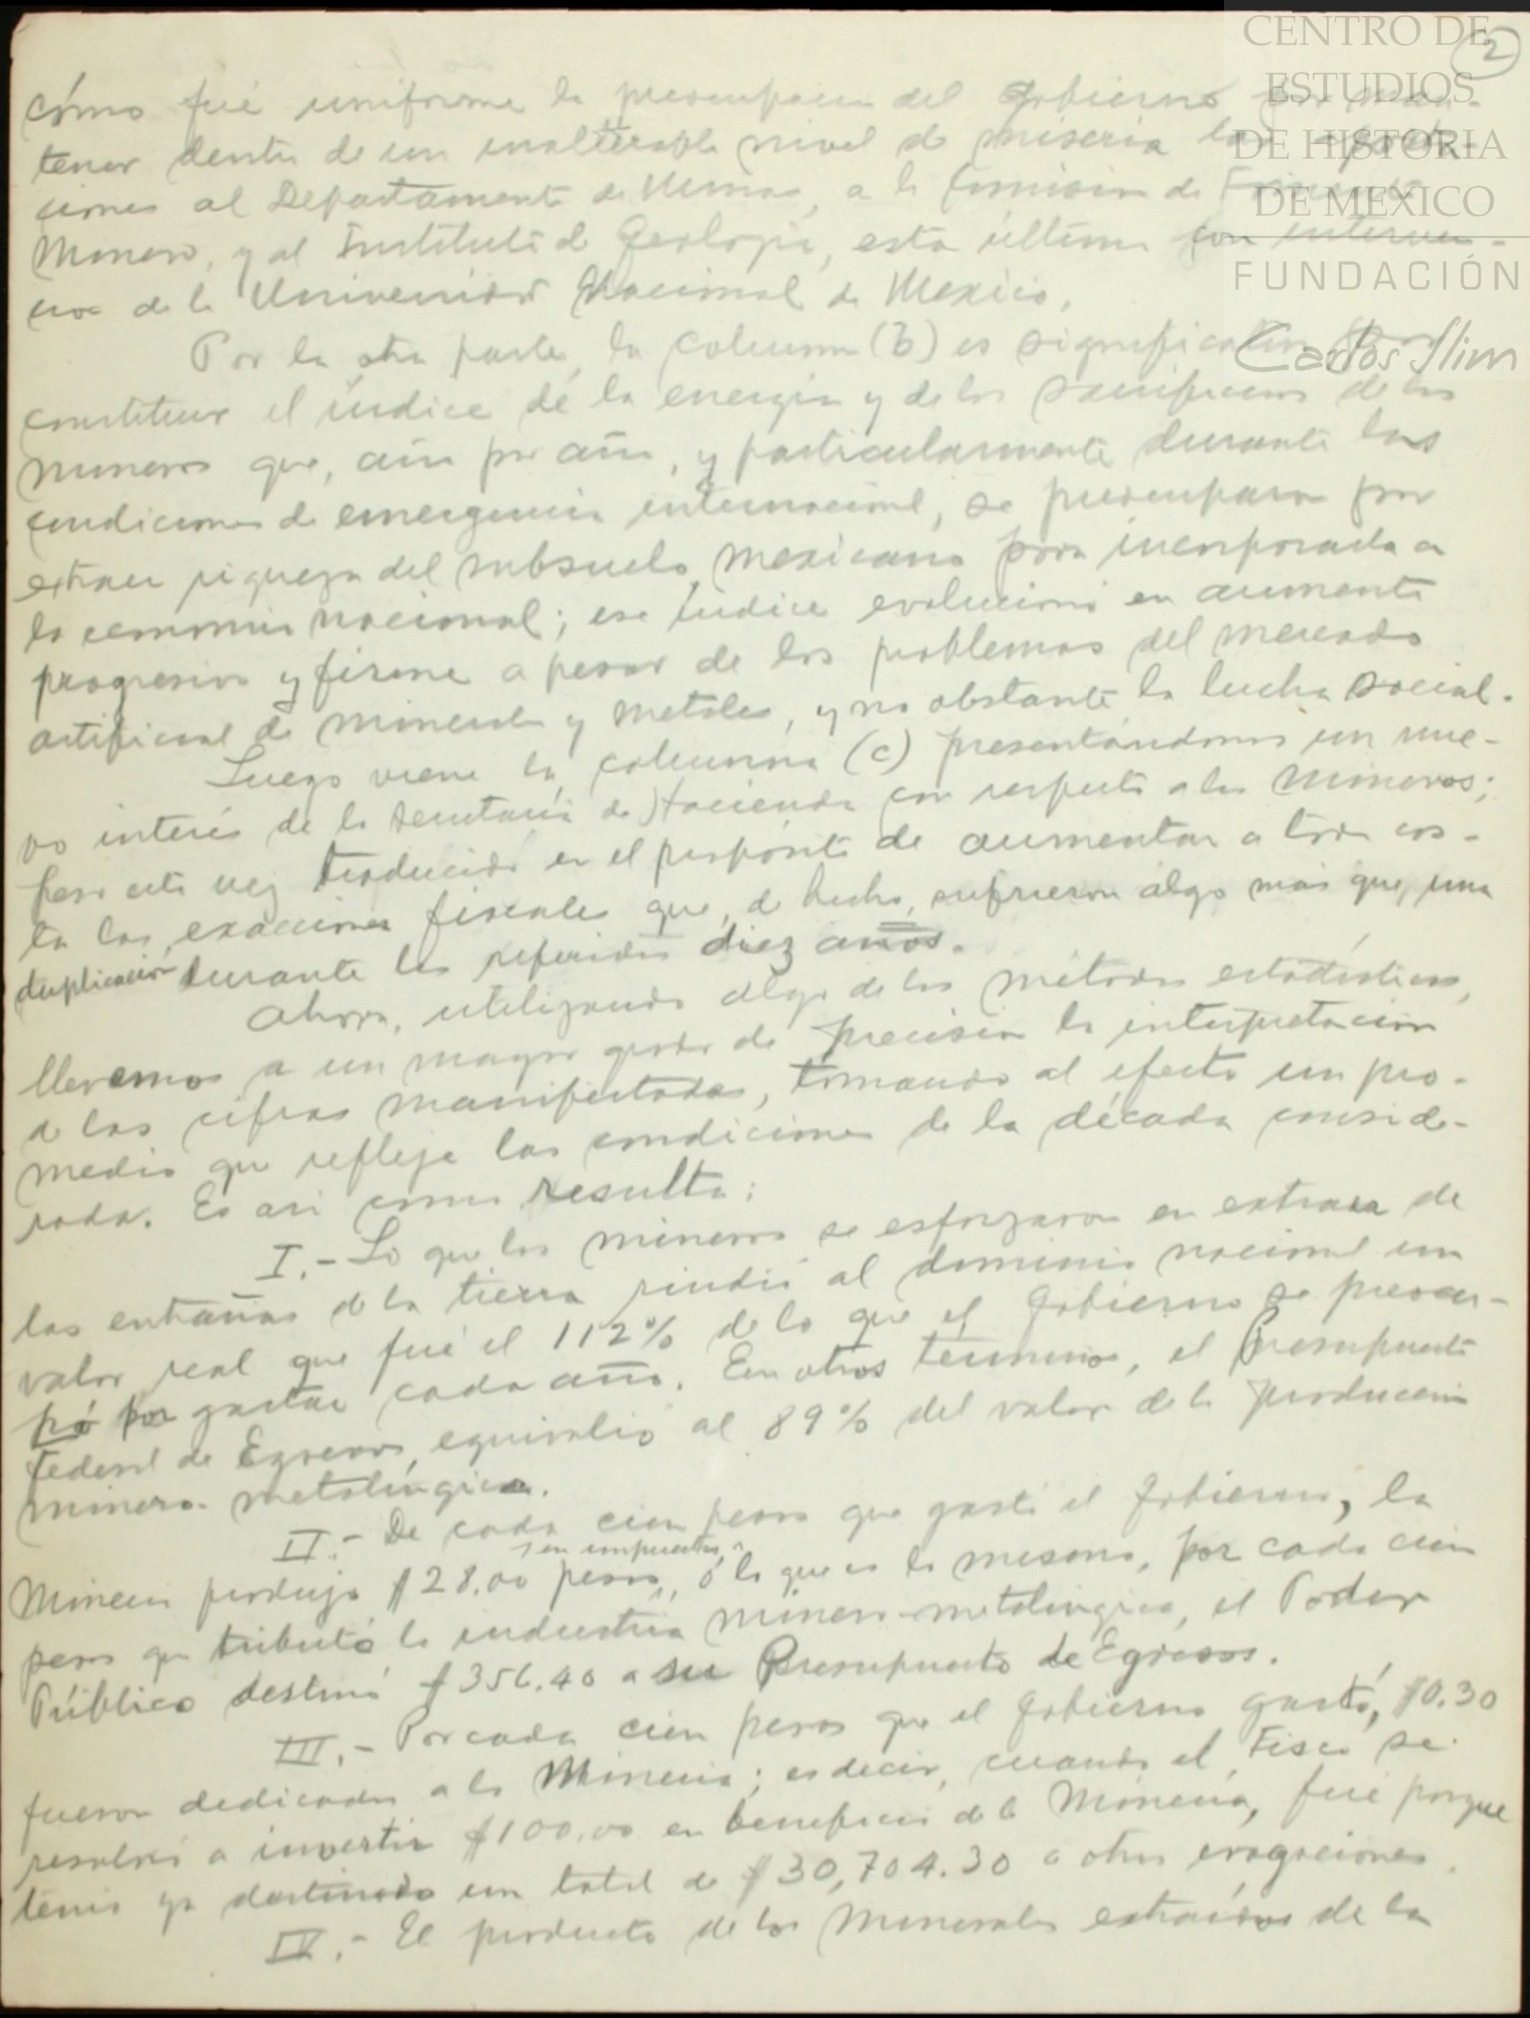 CENTRO DE
ESTUDIOS
DE HISTORIA
DE MEXICO
FUNDACIÓN
Carlos Slim
2
cómo fué uniforme la preocupación del Gobierno por man-
tener dentro de un inalterable nivel de miseria las aporta-
ciones al Departamento de Minas, a la Comisión de Fomento
Minero, y al Instituto de Geología, esta última con interven-
ción de la Universidad Nacional de México.
Por la otra parte, la columna (b) es significativa por
constituir el índice de la energía y de los sacrificios de los
mineros que, año por año, y particularmente durante las
condiciones de emergencia internacional, se preocuparon por
extraer riqueza del subsuelo mexicano para incorporarla a
la economía nacional; ese índice evolucionó en aumento
progresivo y firme a pesar de los problemas del mercado
artificial de minerales y metales, y no obstante la lucha social.
Luego viene la columna (c) presentándonos un nue-
vo interés de la Secretaría de Hacienda con respecto a los mineros;
pero esta vez traducido en el propósito de aumentar a toda cos-
ta las exacciones fiscales que, de hecho, sufrieron algo más que una
duplicación durante los referidos diez años.
Ahora, utilizando algo de los métodos estadísticos,
llevemos a un mayor grado de precisión la interpretación
de las cifras manifestadas, tomando al efecto un pro-
medio que refleje las condiciones de la década conside-
rada. Es así como resulta:
I.- Lo que los mineros se esforzaron en extraer de
las entrañas de la tierra rindió al dominio nacional un
valor real que fué el 112% de lo que el Gobierno se preocu-
pó por gastar cada año. En otros términos, el Presupuesto
Federal de Egresos equivalió al 89% del valor de la producción
minero-metalúrgica.
II.- De cada cien pesos que gastó el Gobierno, la
Minería produjo $28.00 pesos en impuestos, ó lo que es lo mismo, por cada cien
pesos que tributó la industria minero-metalúrgica, el Poder
Público destinó $356.40 a su Presupuesto de Egresos.
III.- Por cada cien pesos que el Gobierno gastó, $0.30
fueron dedicados a la Minería; es decir, cuando el Fisco se
resolvió a invertir $100.00 en beneficio de la Minería, fué porque
tenía ya destinado un total de $30,704.30 a otras erogaciones.
IV.- El producto de los minerales extraídos de la